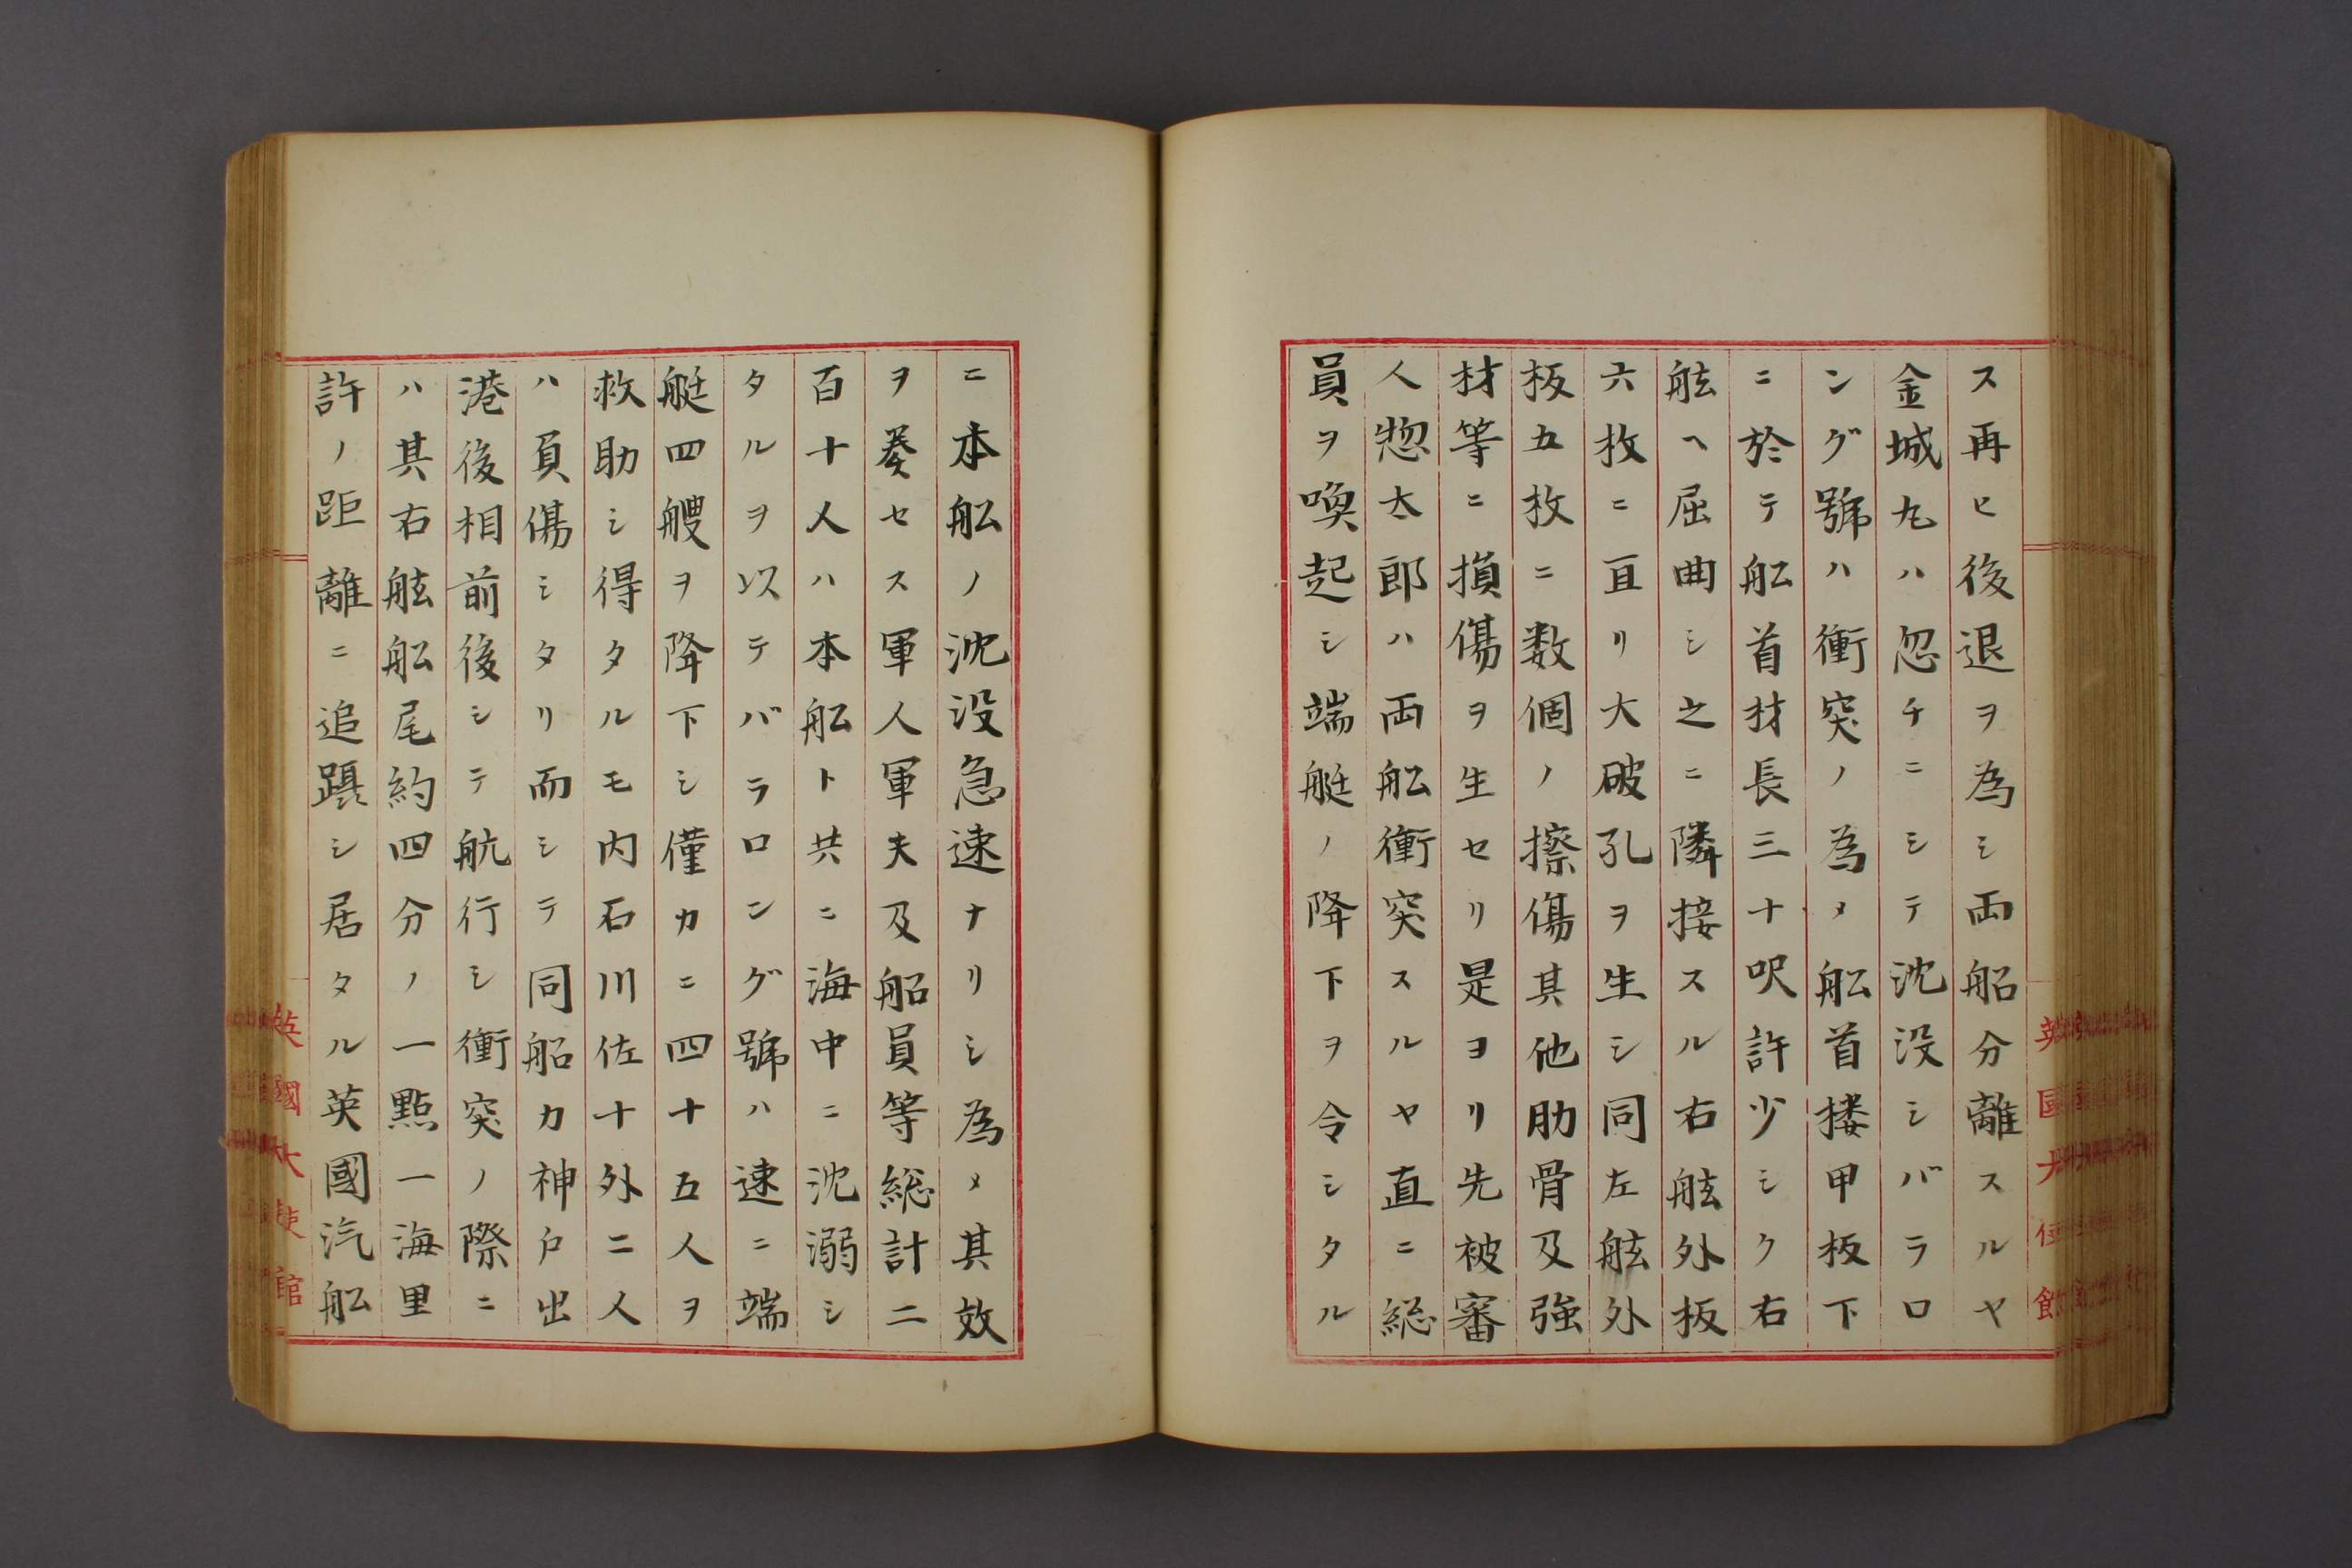 ス再ヒ後退ヲ為シ両船分離スルヤ
金城丸ハ忽チニシテ沈没シバラロ
ング號ハ衝突ノ為メ船首搂甲板下
ニ於テ船首材長三十呎許少シク右
舷ヘ屈曲シ之ニ隣接スル右舷外板
六枚ニ亘リ大破孔ヲ生シ同左舷外
板五枚ニ数個ノ擦傷其他肋骨及強
材等ニ損傷ヲ生セリ是ヨリ先被審
人惣太郎ハ両船衝突スルヤ直ニ総
員ヲ喚起シ端艇ノ降下ヲ令シタル
ニ本船ノ沈没急速ナリシ為メ其效
ヲ奏セス軍人軍夫及船員等総計二
百十人ハ本船ト共ニ海中ニ沈溺シ
タルヲ以テバラロング號ハ速ニ端
艇四艘ヲ降下シ僅カニ四十五人ヲ
救助シ得タルモ内石川佐十外二人
ハ負傷シタリ而シテ同船カ神戸出
港後相前後シテ航行シ衝突ノ際ニ
ハ其右舷船尾約四分ノ一點一海里
許ノ距離ニ追躡シ居タル英國汽船
英國大使館